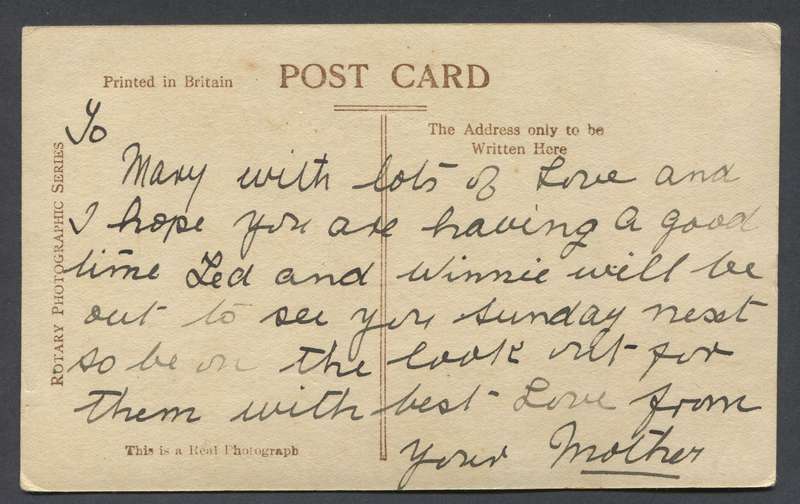 Printed in Britain
POST CARD
The Address only to be
Written Here
ROTARY PHOTOGRAPHIC SERIES
To
Mary with lots of Love and
I hope you are having a good
time Ted and Winnie will be
out to see you sunday next
so be on the look out for
them with best Love from
your Mother
This is a Real Photograph